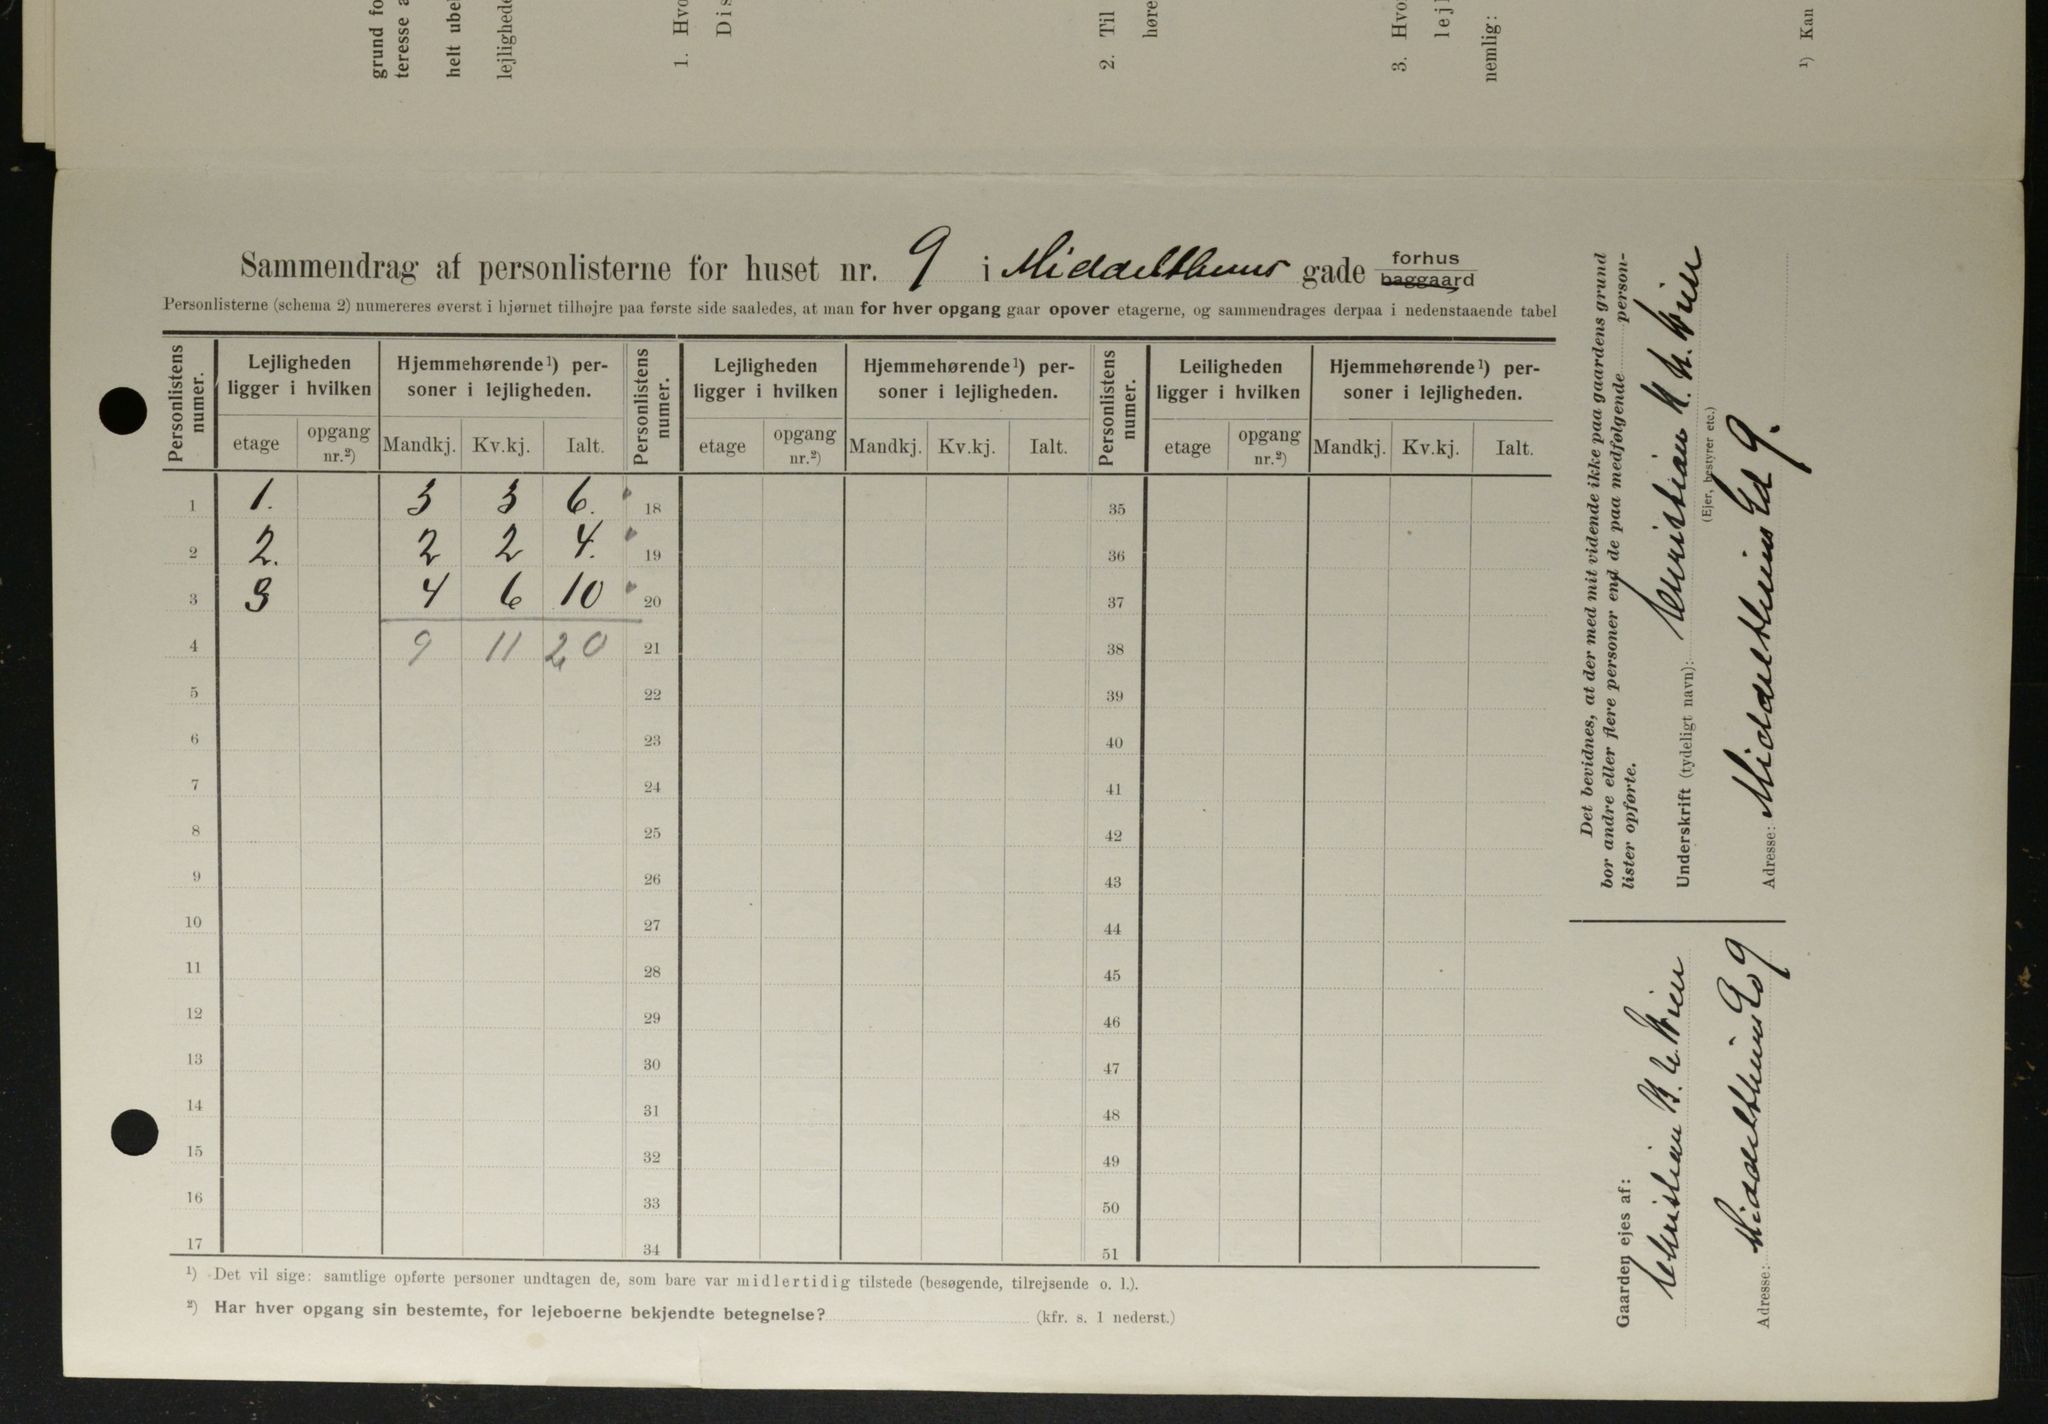 grund fo
teresse a
helt ube
lejlighede
1. Hvo
Dis
2. Til
høre
3. Hvo
lejl
nemlig:
¹) Kan
Sammendrag af personlisterne for huset nr. 9 i Middelthuns gade forhus baggaard
Personlisterne (schema 2) numereres øverst i hjørnet tilhøjre paa første side saaledes, at man for hver opgang gaar opover etagerne, og sammendrages derpaa i nedenstaaende tabel
Personlistens numer. Lejligheden ligger i hvilken Hjemmehørende¹) personer i lejligheden. Personlistens numer. Lejligheden ligger i hvilken Hjemmehørende¹) personer i lejligheden. Personlistens numer. Leiligheden ligger i hvilken Hjemmehørende¹) personer i lejligheden.
etage opgang nr.²) Mandkj. Kv.kj. Ialt. etage opgang nr.²) Mandkj. Kv.kj. Ialt. etage opgang nr.²) Mandkj. Kv.kj. Ialt.
1 1. 3 3 6. 18 35
2 2. 2 2 4. 19 36
3 3 4 6 10 20 37
4 9 11 20 21 38
5 22 39
6 23 40
7 24 41
8 25 42
9 26 43
10 27 44
11 28 45
12 29 46
13 30 47
14 31 48
15 32 49
16 33 50
17 34 51
¹) Det vil sige: samtlige opførte personer undtagen de, som bare var midlertidig tilstede (besøgende, tilrejsende o. l.).
²) Har hver opgang sin bestemte, for lejeboerne bekjendte betegnelse? (kfr. s. 1 nederst.)
Det bevidnes, at der med mit vidende ikke paa gaardens grund
bor andre eller flere personer end de paa medfølgende person-
lister opførte.
Underskrift (tydeligt navn): Christian
(Ejer, bestyrer etc.)
Adresse: Middelthuns Gd 9.
Gaarden ejes af:
Christian
Adresse: Middelthuns Gd 9